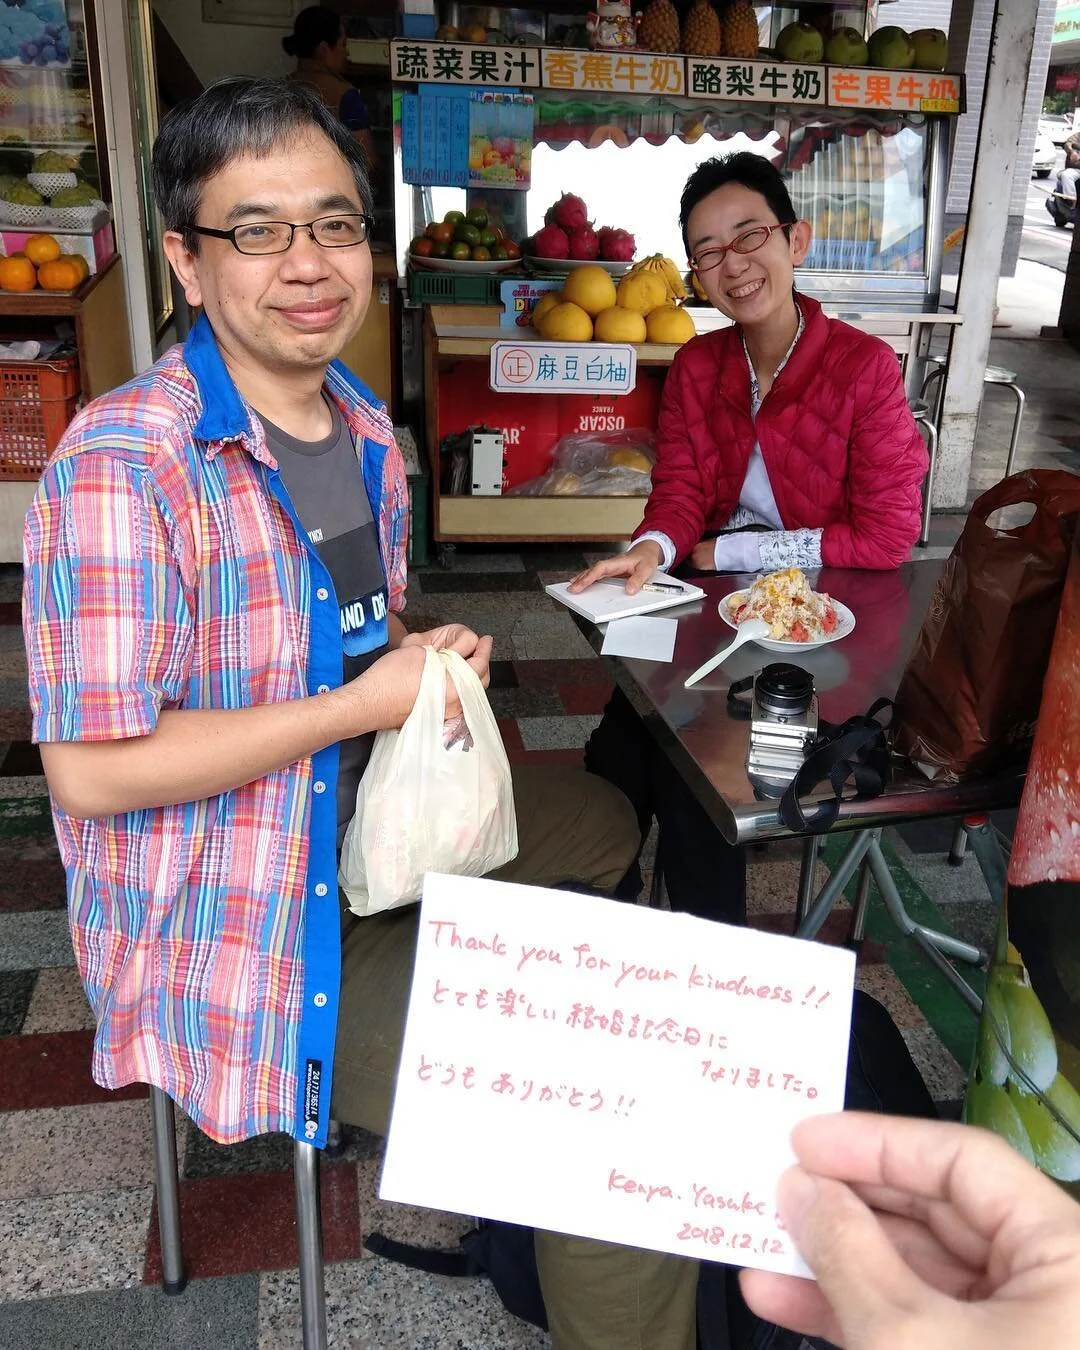 蔬菜果汁
香蕉牛奶
酪梨牛奶
芒果牛奶
正 麻豆白柚
OSCAR
FRANCE
AND DR
24/7/365/
Thank you for your kindness!!
とても楽しい結婚記念日に
なりました。
どうもありがとう!!
Kenya. Yasuke
2018.12.12